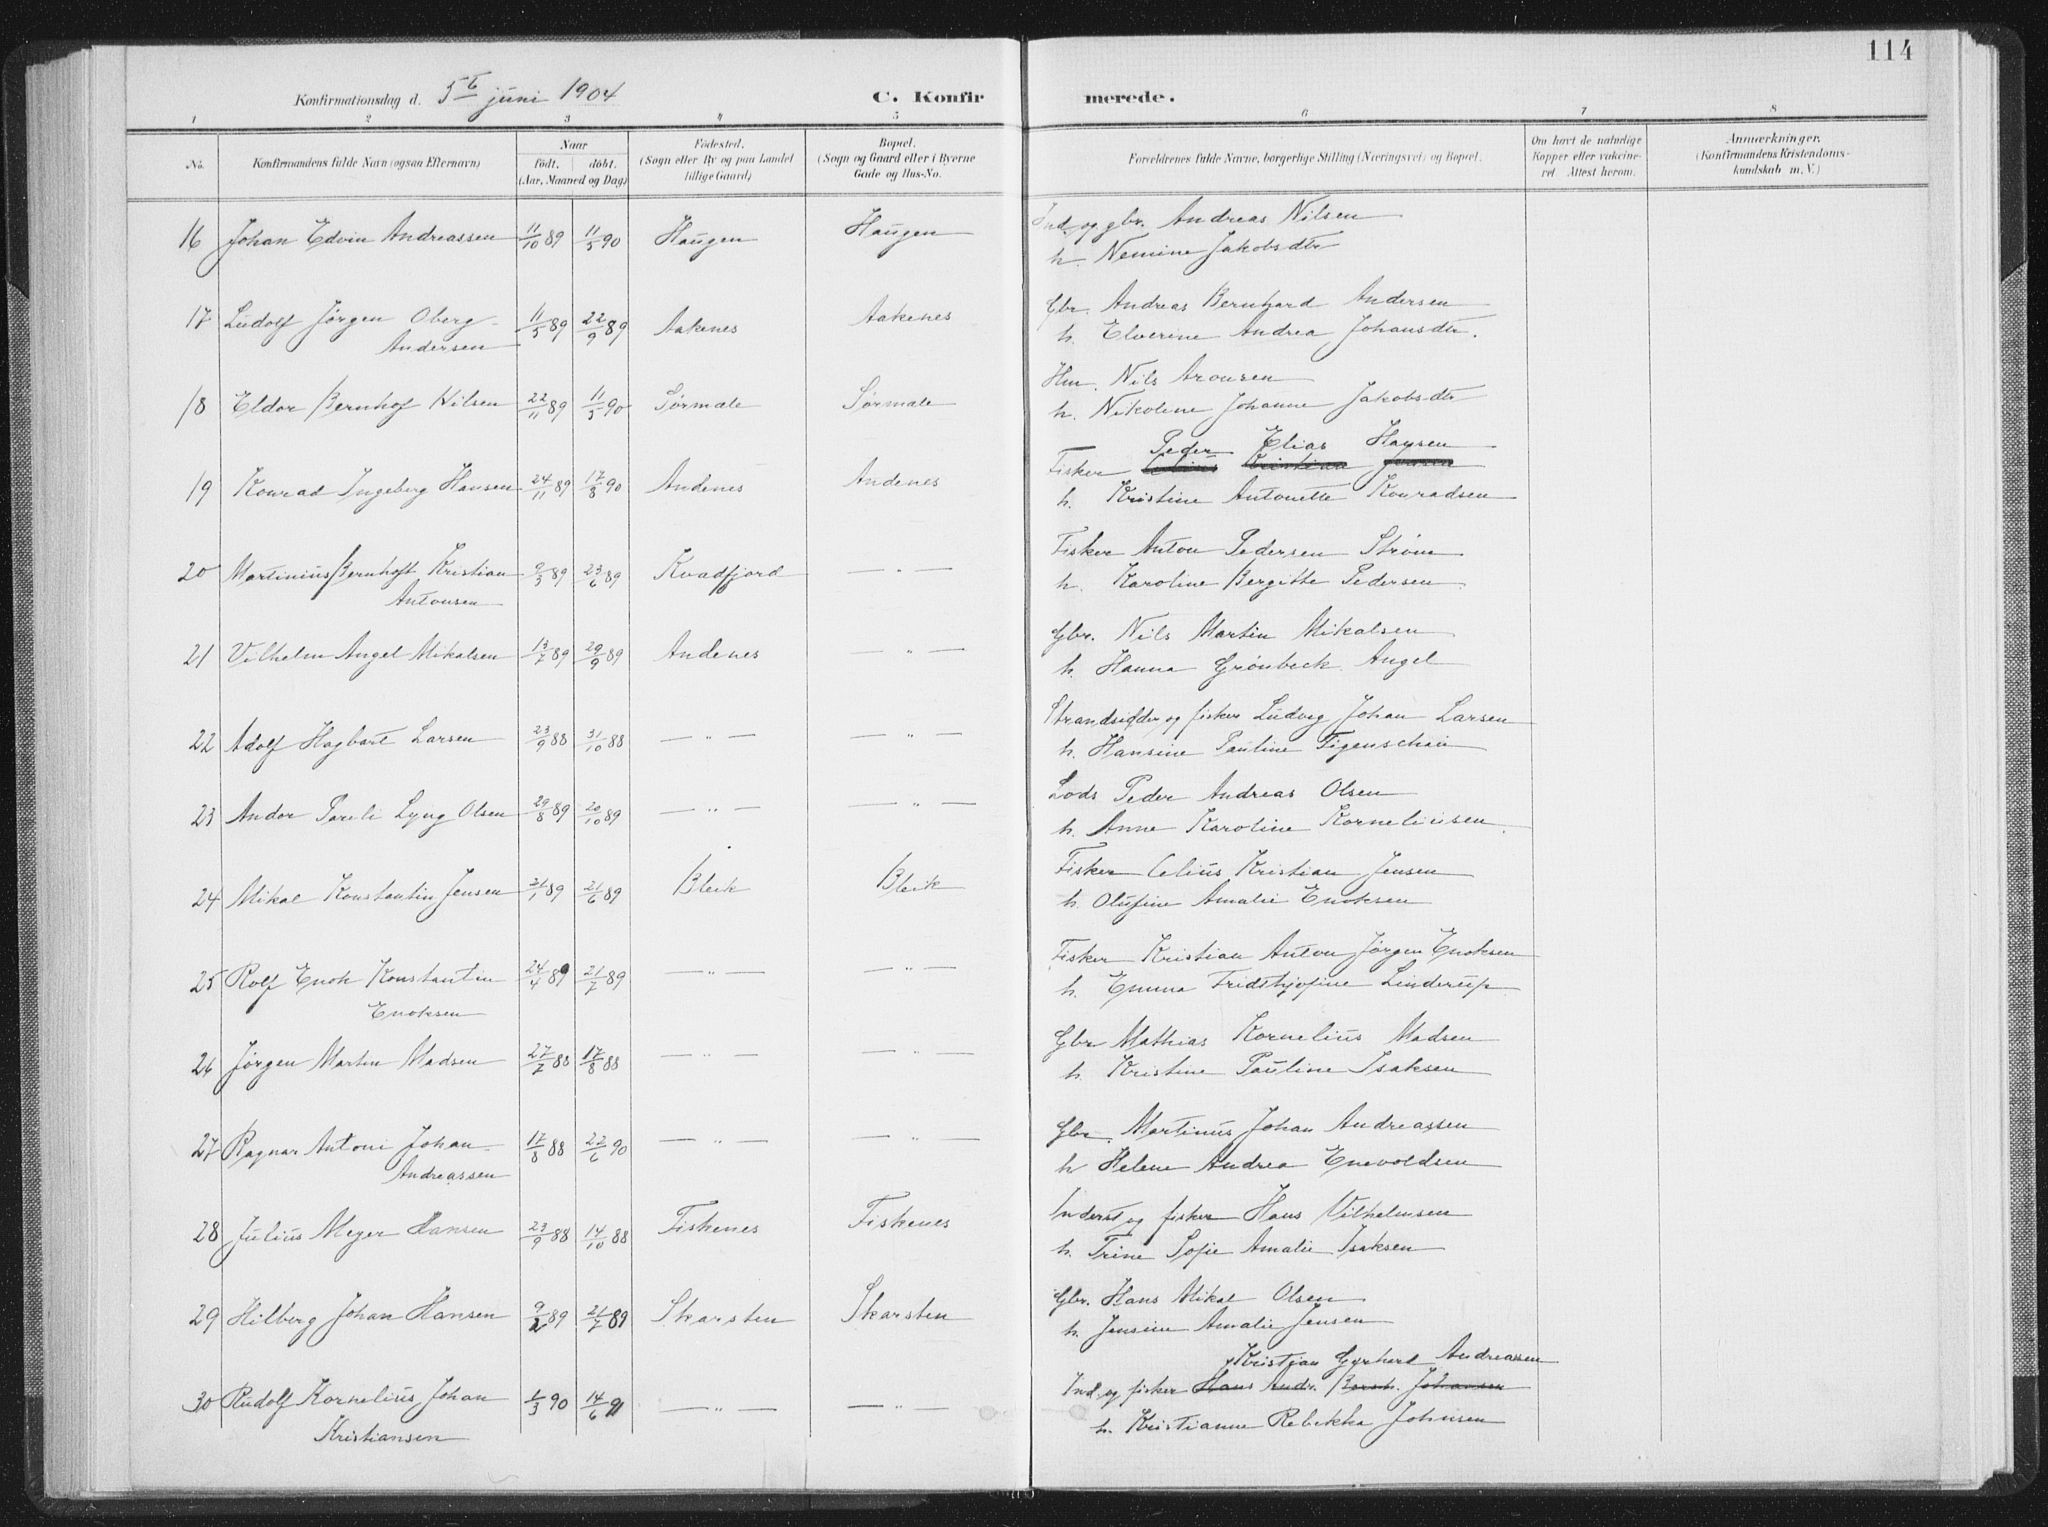 114
Konfirmationsdag d. 5te juni 1904 C. Konfir merede.
1 2 3 4 5 6 7 8
No. Konfirmandens fulde Navn (ogsaa Efternavn) Naar født, døbt. (Aar, Maaned og Dag) Fødested. (Sogn eller By og paa Landet tillige Gaard) Bopæl. (Sogn og Gaard eller i Byerne Gade og Hus-No. Forældrenes fulde Navne, borgerlige Stilling (Næringsvei) og Bopæl. Om havt de naturlige Kopper eller vakcineret. Attest herom. Anmærkninger. (Konfirmandens Kristendomskundskab m. V.)
16 Johan Edvin Andreassen 11/10 89 11/5 90 Haugen Haugen Ind. og gbr. Andreas Nilsen
h. Nemine Jakobsdtr
17 Ludolf Jørgen Oberg 11/5 89 22/9 89 Aakenes Aakenes Gbr. Andreas Bernhard Andersen
Andersen h. Elverine Andrea Johansdtr.
18 Eldor Bernhof Nilsen 22/11 89 11/5 90 Sørmale Sørmale Hm. Nils Aronsen
h. Nikoline Johanne Jakobsdtr
Peder Elias Hansen
19 Konrad Ingeberg Hansen 24/11 89 17/8 90 Andenes Andenes Fisker Kristian Jensen
h. Kristine Antonette Konradsen
20 Martinius Bernhoft Kristian 9/3 89 23/6 89 Kvadfjord — " — Fisker Anton Pedersen Strøm
Antonsen h. Karoline Bergitte Pedersen
21 Vilhelm Angel Mikalsen 13/7 89 29/9 89 Andenes — " — Gbr. Nils Martin Mikalsen
h. Hanna Grønbeck Angel
22 Adolf Hagbart Larsen 23/9 88 31/10 88 — " — — " — Strandsidder og fisker Ludvig Johan Larsen
h. Hansine Pauline Figenschau
23 Andor Pareli Lyng Olsen 29/8 89 20/10 89 — " — — " — Lods Peder Andreas Olsen
h. Anne Karoline Korneliusen
24 Mikal Konstantin Jensen 21/1 89 21/6 89 Bleik Bleik Fisker Celius Kristian Jensen
h. Olufine Amalie Enoksen
25 Rolf Enok Konstantin 24/4 89 21/7 89 — " — — " — Fisker Kristian Anton Jørgen Enoksen
Enoksen h. Emma Fridthjofine Linderup
26 Jørgen Martin Madsen 27/7 88 17/8 88 — " — — " — Gbr Mathias Kornelius Madsen
h. Kristine Pauline Isaksen
27 Ragnar Antoni Johan 17/8 88 22/6 90 — " — — " — Gbr. Martinus Johan Andreassen
Andreassen h Helene Andrea Enevoldsen
28 Julius Meyer Hansen 23/9 88 14/10 88 Fiskenes Fiskenes Inderst og fisker Hans Vilhelmsen
h. Trine Sofie Amalie Isaksen
29 Hilberg Johan Hansen 9/2 89 21/7 89 Skarsten Skarsten Gbr. Hans Mikal Olsen
h. Jensine Amalie Jensen
Kristjan Gerhard Andreassen
30 Rudolf Kornelius Johan 1/3 90 14/6 91 — " — — " — Ind. og fisker Hans Andr. Bernh. Johansen
Kristiansen h. Kristianne Rebekka Johnsen